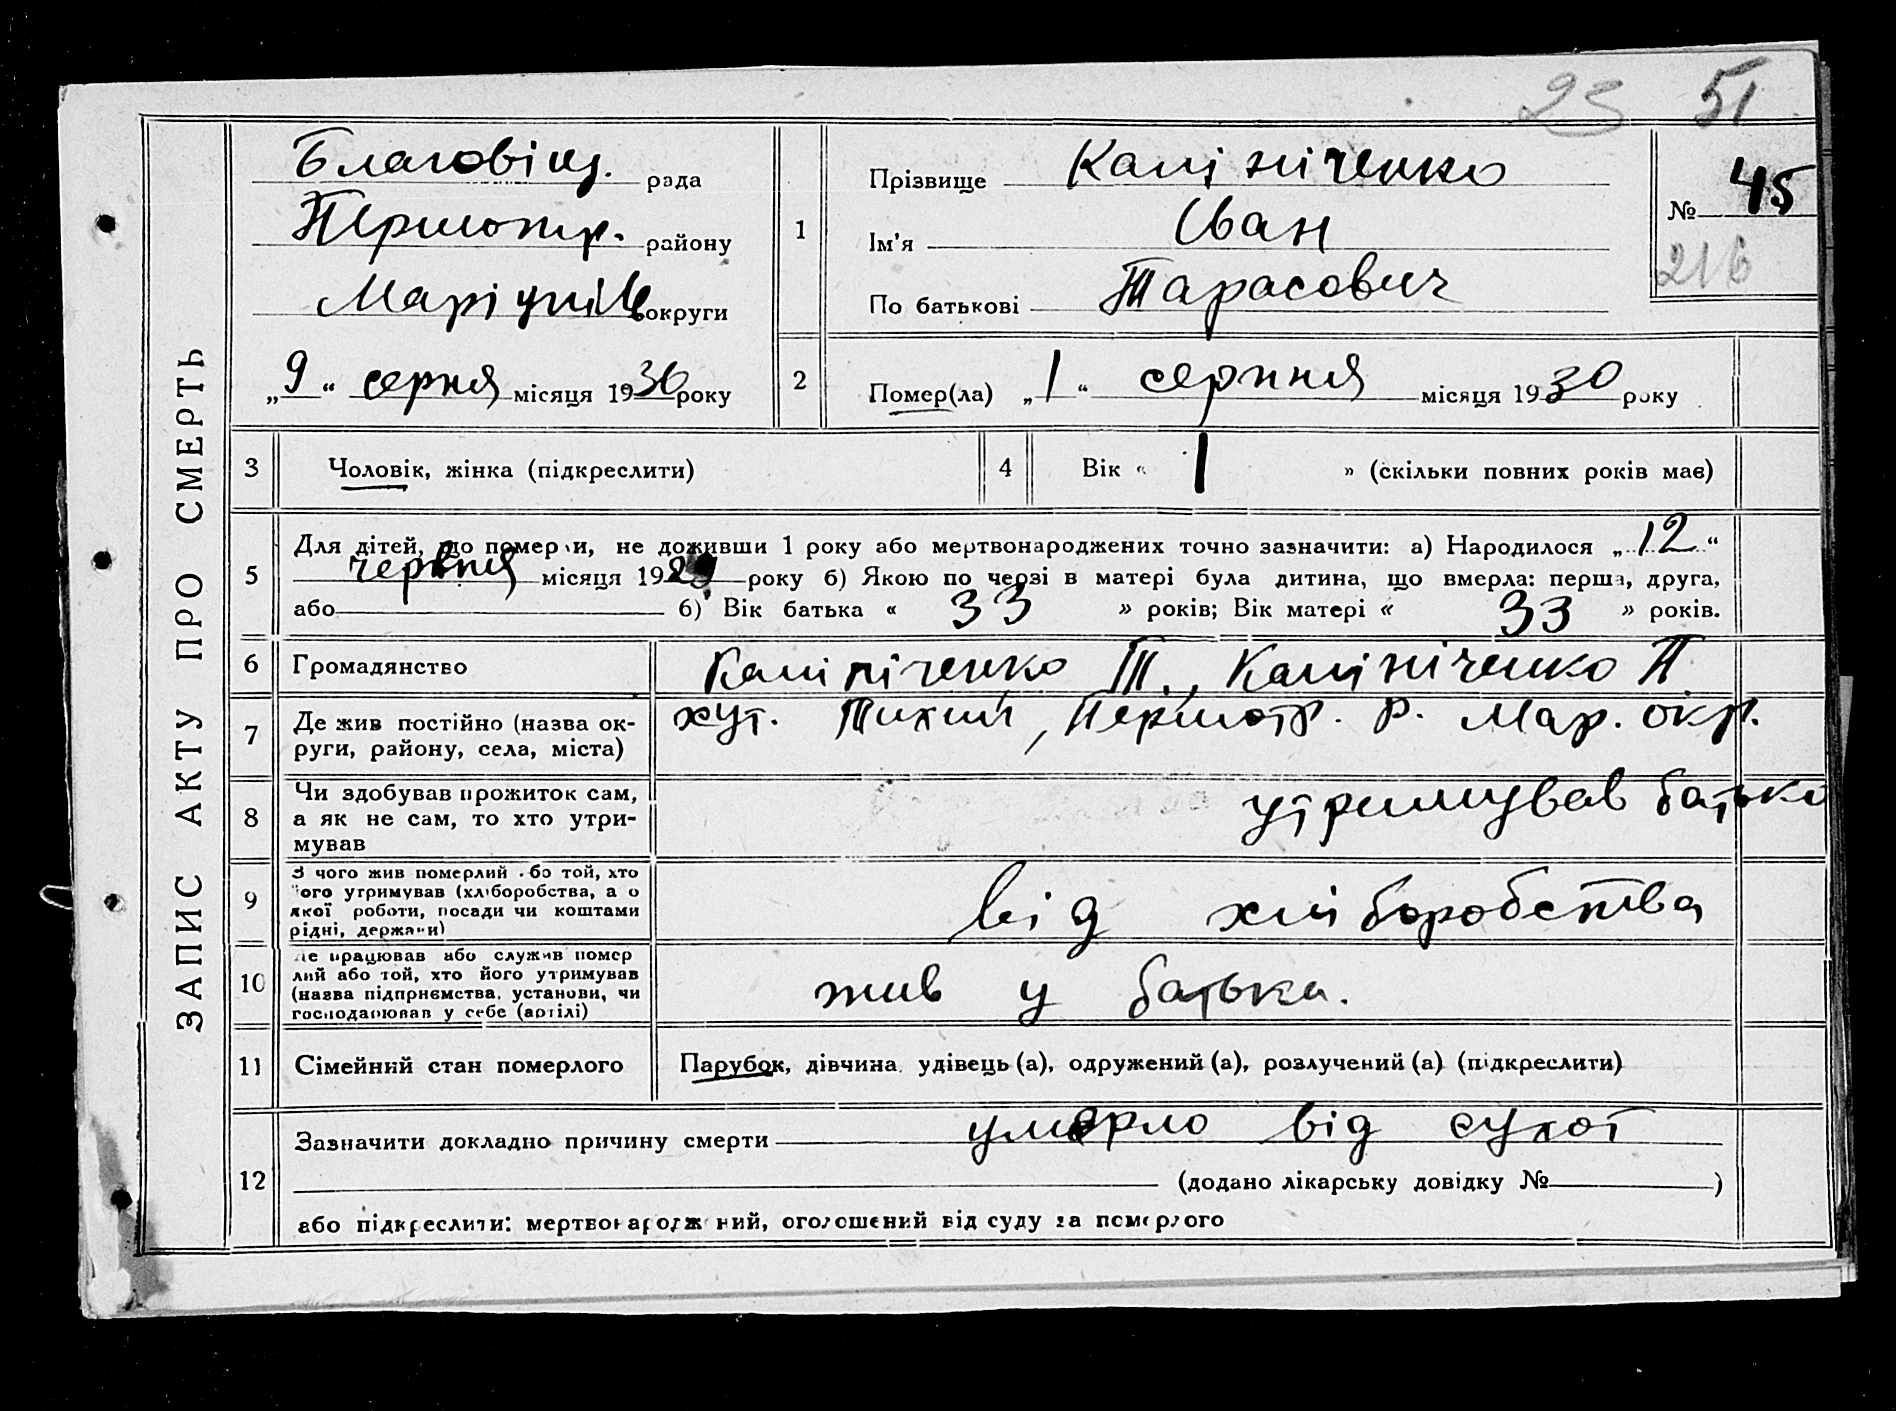 23 51
ЗАПИС АКТУ ПРО СМЕРТЬ
Благовіщ. рада
Першотр. району
Маріупільс округи
„9“ серпня місяця 1930 року
1
Прізвище Калініченко
Ім’я Іван
По батькові Тарасович
№ 45
216
2
Помер(ла) „1“ серпня місяця 1930 року
3 Чоловік, жінка (підкреслити)
4 Вік « 1 » (скільки повних років має)
5 Для дітей, що померли, не доживши 1 року або мертвонароджених точно зазначити: а) Народилося „12“
червня місяця 1929 року б) Якою по черзі в матері була дитина, що вмерла: перша, друга,
або 6) Вік батька « 33 » років; Вік матері « 33 » років.
6 Громадянство Калініченко Т., Калініченко П.
7 Де жив постійно (назва ок-
руги, району, села, міста)
хут. Тихий, Першотр. р. Мар. окр.
8 Чи здобував прожиток сам,
а як не сам, то хто утри-
мував
утримував батько
9 З чого жив померлий або той, хто
його утримував (хліборобства, а о
якої роботи, посади чи коштами
рідні, держави)
від хліборобства
10 Де працював або служив помер
лий або той, хто його утримував
(назва підприємства, установи, чи
господарював у себе (артілі)
жив у батька.
11 Сімейний стан померлого Парубок, дівчина, удівець(а), одружений(а), розлучений(а) (підкреслити)
12 Зазначити докладно причину смерти умерло від сухот
(додано лікарську довідку № )
або підкреслити: мертвонароджений, оголошений від суду за померлого